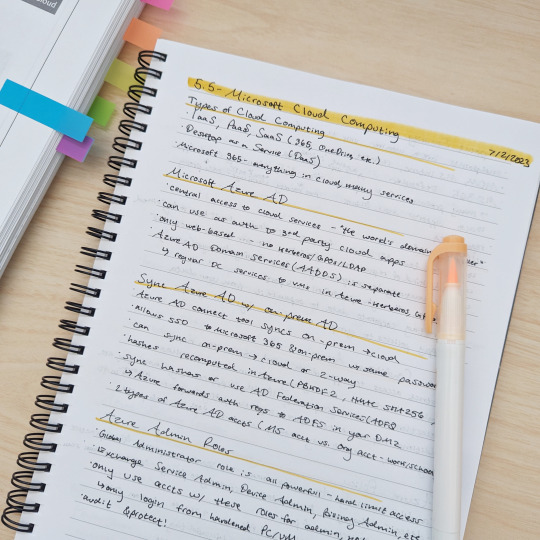 5.5 - Microsoft Cloud Computing
7/2/2023
Types of Cloud Computing
· IaaS, PaaS, SaaS (365, OneDrive, etc.)
· Desktop as a Service (DaaS)
· Microsoft 365 - everything in cloud, many services
Microsoft Azure AD
· central access to cloud services - "the world's domain
· can use as auth to 3rd party cloud apps
· only web-based - no Kerberos/GPOs/LDAP
· Azure AD Domain Services (AADDS) is separate
↳ regular DC services to VMs in Azure - Kerberos,
Sync Azure AD w/ on-prem AD
· Azure AD connect tool syncs on-prem → cloud
· allows SSO to Microsoft 365 & on-prem w same
· can sync on-prem → cloud or 2-way
· hashes recomputed in Azure (PBKDF2, HMAC SHA256,
· sync hashes or use AD Federation Services (ADFS
↳ Azure forwards auth reqs to ADFS in your DMZ
· 2 types of Azure AD accts (MS acct vs. org acct - work/school
Azure Admin Roles
· Global Administrator role is all powerful - hard limit access
· Exchange Service Admin, Device Admin, Billing Admin, etc
· only use accts w/ these roles for admin,
↳ only login from hardened PC/VM
· audit & protect!